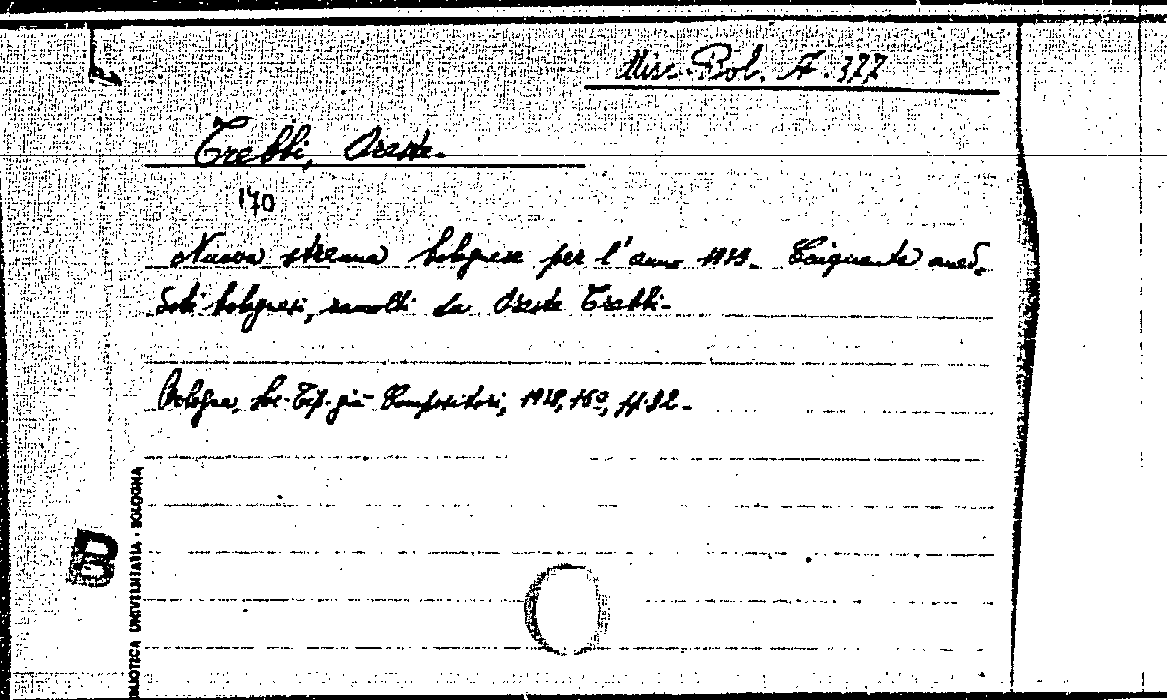 Misc. Bol. A. 377
Trebbi, Oreste.
170
Nuova strenna bolognese per l'anno 1919. Cinquanta aned-
doti bolognesi, raccolti da Oreste Trebbi.
Bologna, Soc. Tip. già Compositori, 1918, 16º, pp. 82.
BIBLIOTICA UNIVERSITARIA - BOLOGNA